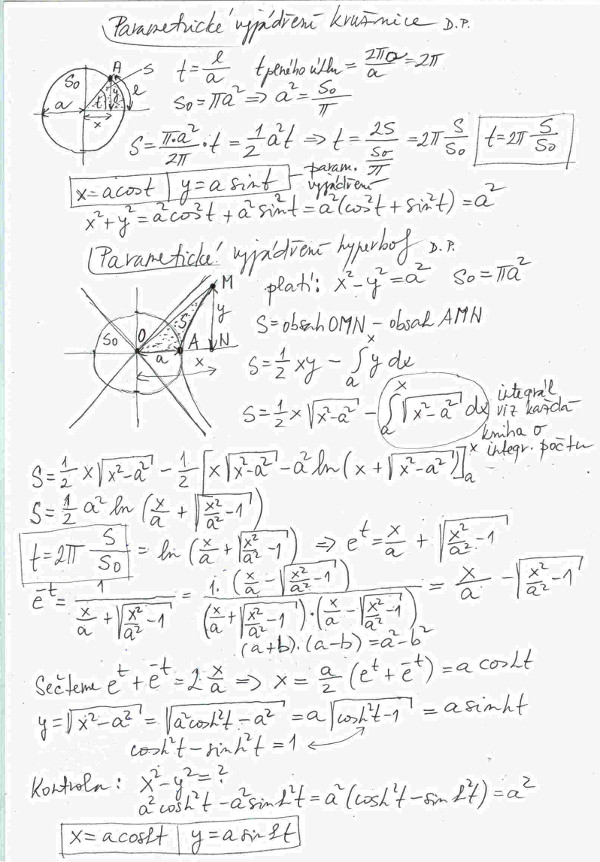 Parametrické vyjádření kružnice D.P.
A S So a t y l x
t = l/a t plného úhlu = 2πa/a = 2π
So = πa² ⇒ a² = So/π
S = π·a²/2π · t = 1/2 a²t ⇒ t = 2S/(So/π) = 2π S/So t = 2π S/So
x = a cos t | y = a sin t – param. vyjádření
x² + y² = a²cos²t + a²sin²t = a²(cos²t + sin²t) = a²
Parametické vyjádření hyperbol D.P.
platí: x² − y² = a² So = πa²
M So O S y A N a x
S = obsah OMN − obsah AMN
S = 1/2 xy − ∫ₐˣ y dx
S = 1/2 x √(x²−a²) − ∫ₐˣ √(x²−a²) dx integrál viz každá kniha o integr. počtu
S = 1/2 x √(x²−a²) − 1/2 [x √(x²−a²) − a² ln (x + √(x²−a²))]ₐˣ
S = 1/2 a² ln (x/a + √(x²/a² − 1))
t = 2π S/So = ln (x/a + √(x²/a² − 1)) ⇒ eᵗ = x/a + √(x²/a² − 1)
e⁻ᵗ = 1/(x/a + √(x²/a² − 1)) = 1·(x/a − √(x²/a² − 1))/((x/a + √(x²/a² − 1))·(x/a − √(x²/a² − 1))) = x/a − √(x²/a² − 1)
(a+b)·(a−b) = a² − b²
Sečteme eᵗ + e⁻ᵗ = 2·x/a ⇒ x = a/2 (eᵗ + e⁻ᵗ) = a cosh t
y = √(x² − a²) = √(a²cosh²t − a²) = a √(cosh²t − 1) = a sinh t
cosh²t − sinh²t = 1
Kontrola: x² − y² = ?
a²cosh²t − a²sinh²t = a²(cosh²t − sinh²t) = a²
x = a cosh t | y = a sinh t